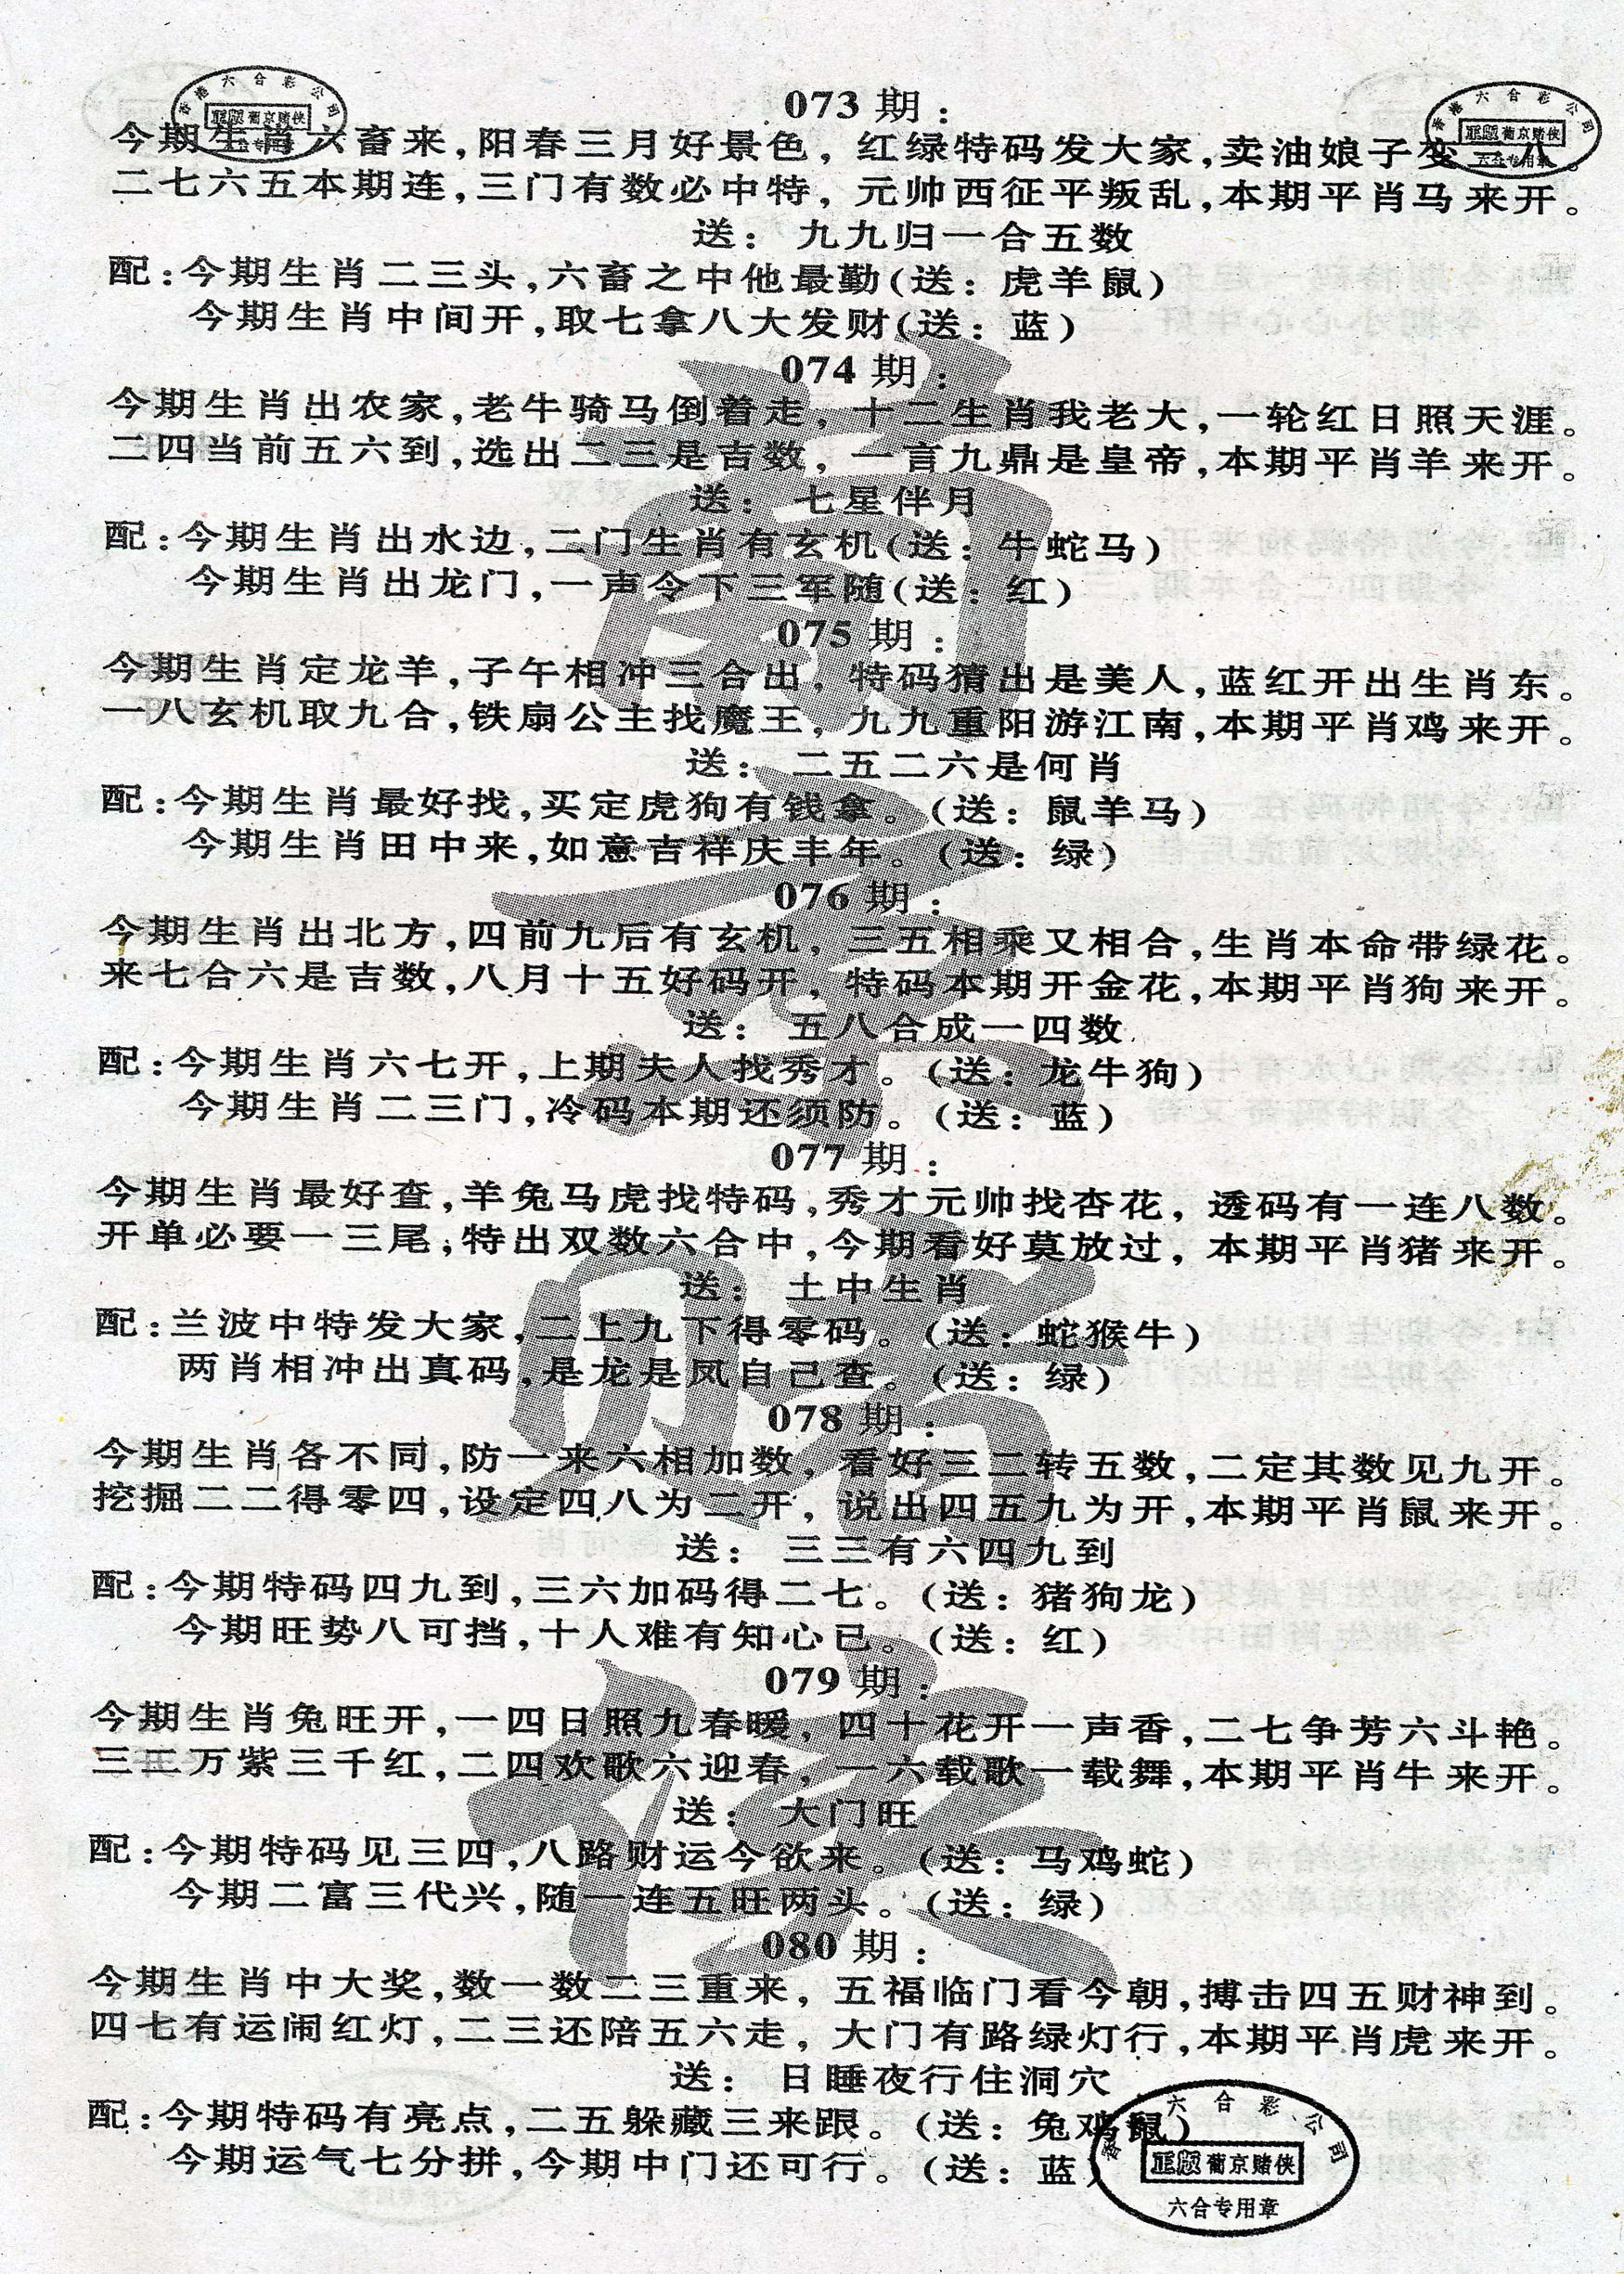 香港六合彩公司
正版 葡京赌侠
香港六合彩公司
正版 葡京赌侠
六合专用章
073 期：
今期生肖六畜来,阳春三月好景色,红绿特码发大家,卖油娘子变二八。
二七六五本期连,三门有数必中特,元帅西征平叛乱,本期平肖马来开。
送：九九归一合五数
配:今期生肖二三头,六畜之中他最勤(送：虎羊鼠)
今期生肖中间开,取七拿八大发财(送：蓝)
074 期：
今期生肖出农家,老牛骑马倒着走,十二生肖我老大,一轮红日照天涯。
二四当前五六到,选出二三是吉数,一言九鼎是皇帝,本期平肖羊来开。
送：七星伴月
配:今期生肖出水边,二门生肖有玄机(送：牛蛇马)
今期生肖出龙门,一声令下三军随(送：红)
075 期：
今期生肖定龙羊,子午相冲三合出,特码猜出是美人,蓝红开出生肖东。
一八玄机取九合,铁扇公主找魔王,九九重阳游江南,本期平肖鸡来开。
送：二五二六是何肖
配:今期生肖最好找,买定虎狗有钱拿。(送：鼠羊马)
今期生肖田中来,如意吉祥庆丰年。(送：绿)
076 期：
今期生肖出北方,四前九后有玄机,三五相乘又相合,生肖本命带绿花。
来七合六是吉数,八月十五好码开,特码本期开金花,本期平肖狗来开。
送：五八合成一四数
配:今期生肖六七开,上期夫人找秀才。(送：龙牛狗)
今期生肖二三门,冷码本期还须防。(送：蓝)
077 期：
今期生肖最好查,羊兔马虎找特码,秀才元帅找杏花,透码有一连八数。
开单必要一三尾;特出双数六合中,今期看好莫放过,本期平肖猪来开。
送：土中生肖
配:兰波中特发大家,二上九下得零码。(送：蛇猴牛)
两肖相冲出真码,是龙是凤自己查。(送：绿)
078 期：
今期生肖各不同,防一来六相加数,看好三二转五数,二定其数见九开。
挖掘二二得零四,设定四八为二开,说出四五九为开,本期平肖鼠来开。
送：三三有六四九到
配:今期特码四九到,三六加码得二七。(送：猪狗龙)
今期旺势八可挡,十人难有知心已。(送：红)
079 期：
今期生肖兔旺开,一四日照九春暖,四十花开一声香,二七争芳六斗艳。
三三万紫三千红,二四欢歌六迎春,一六载歌一载舞,本期平肖牛来开。
送：大门旺
配:今期特码见三四,八路财运今欲来。(送：马鸡蛇)
今期二富三代兴,随一连五旺两头。(送：绿)
080 期：
今期生肖中大奖,数一数二三重来,五福临门看今朝,搏击四五财神到。
四七有运闹红灯,二三还陪五六走,大门有路绿灯行,本期平肖虎来开。
送：日睡夜行住洞穴
配:今期特码有亮点,二五躲藏三来跟。(送：兔鸡鼠)
今期运气七分拼,今期中门还可行。(送：蓝)
香港六合彩公司
正版 葡京赌侠
六合专用章
葡京赌侠